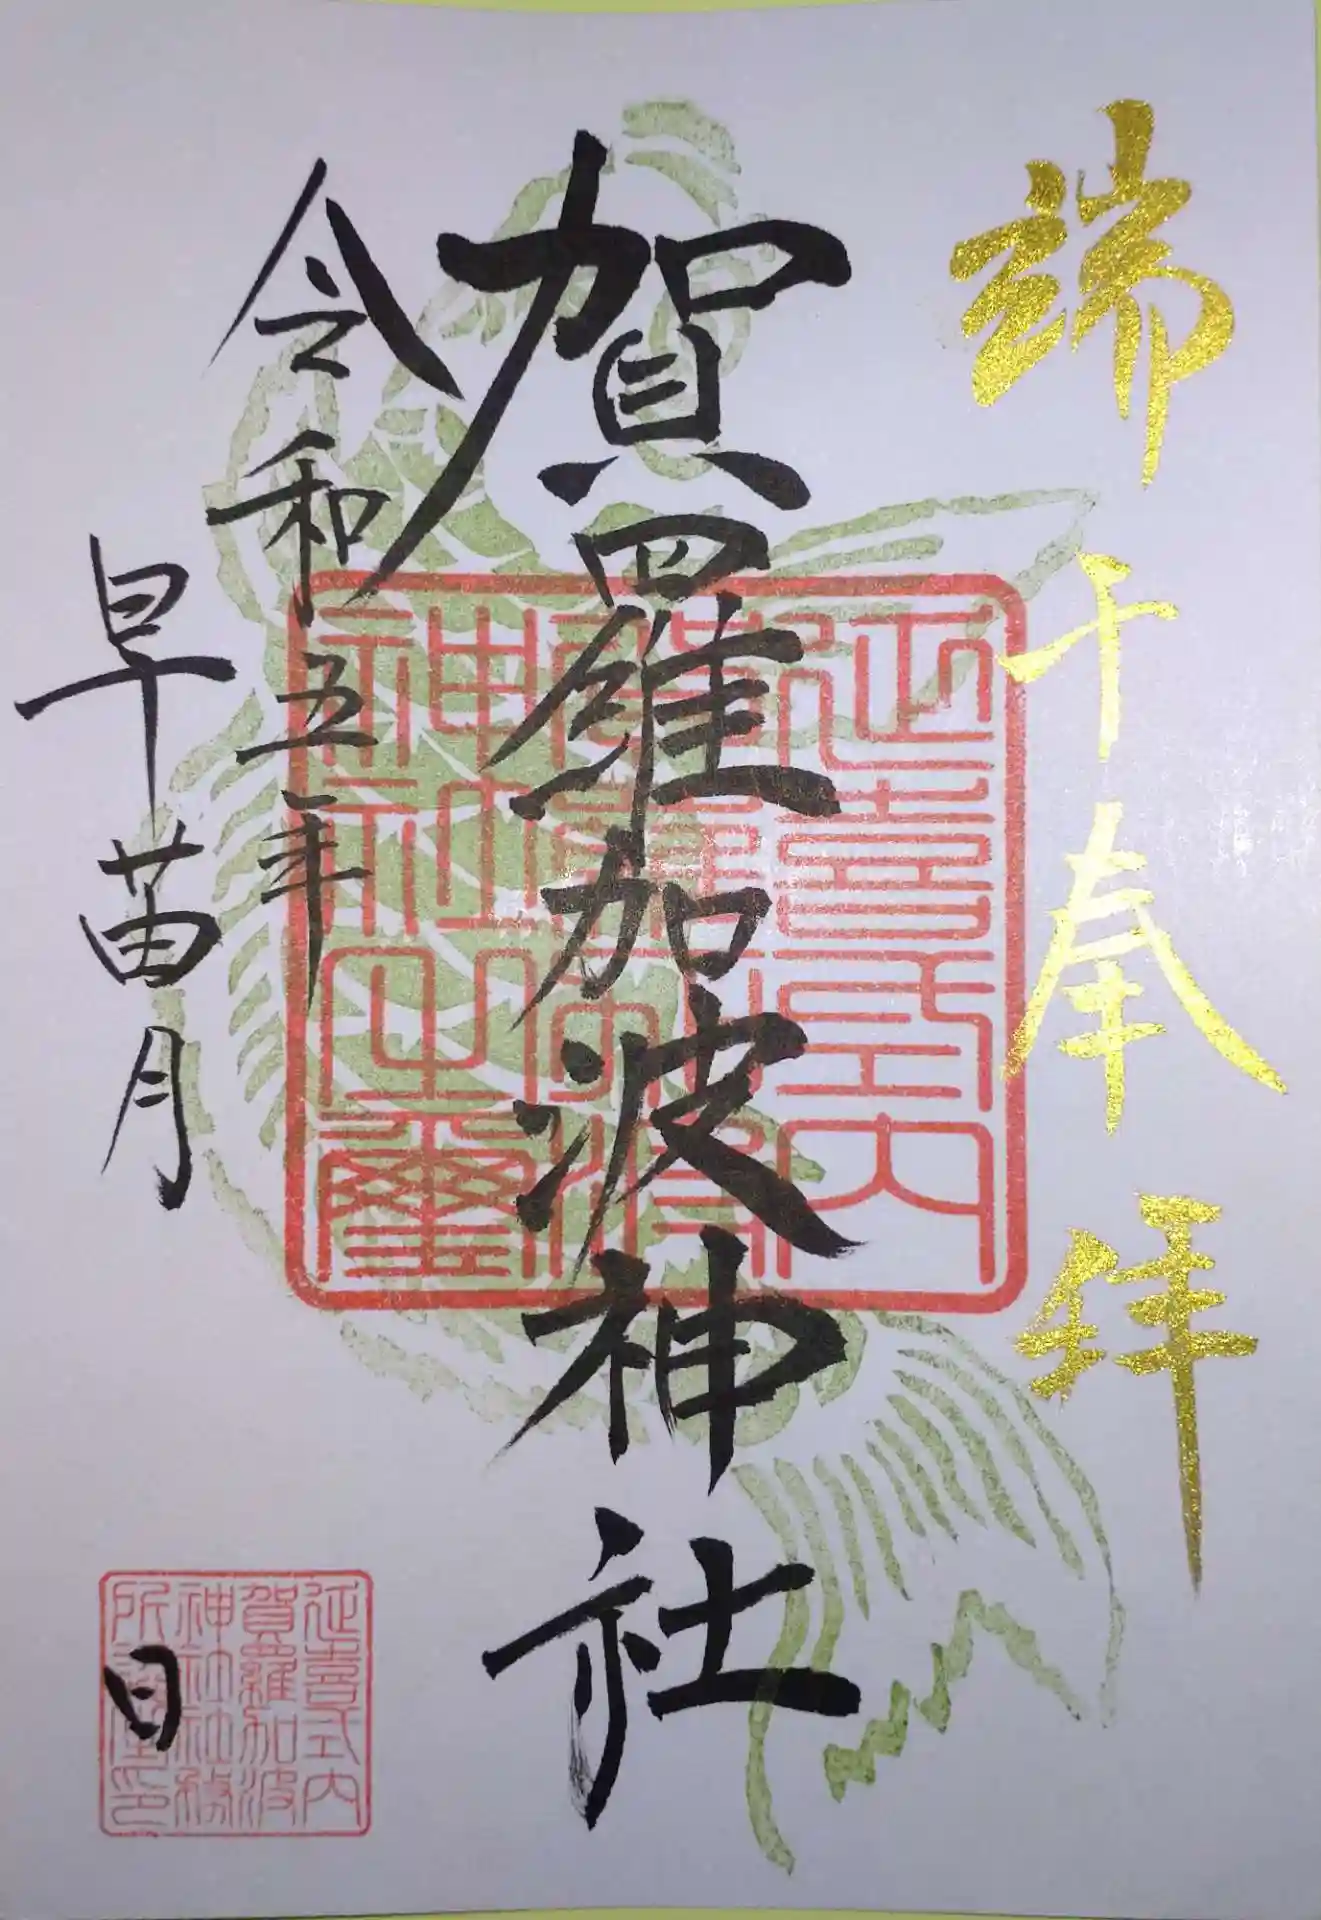 端午奉拝
賀羅加波神社
令和五年
早苗月
日
延喜式内
賀羅加波
神社之璽
延喜式内
賀羅加波
神社社務
所
印